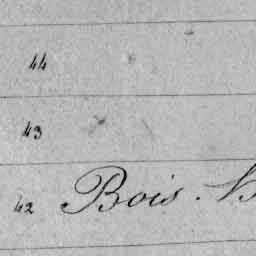 44
43
42 Bois.